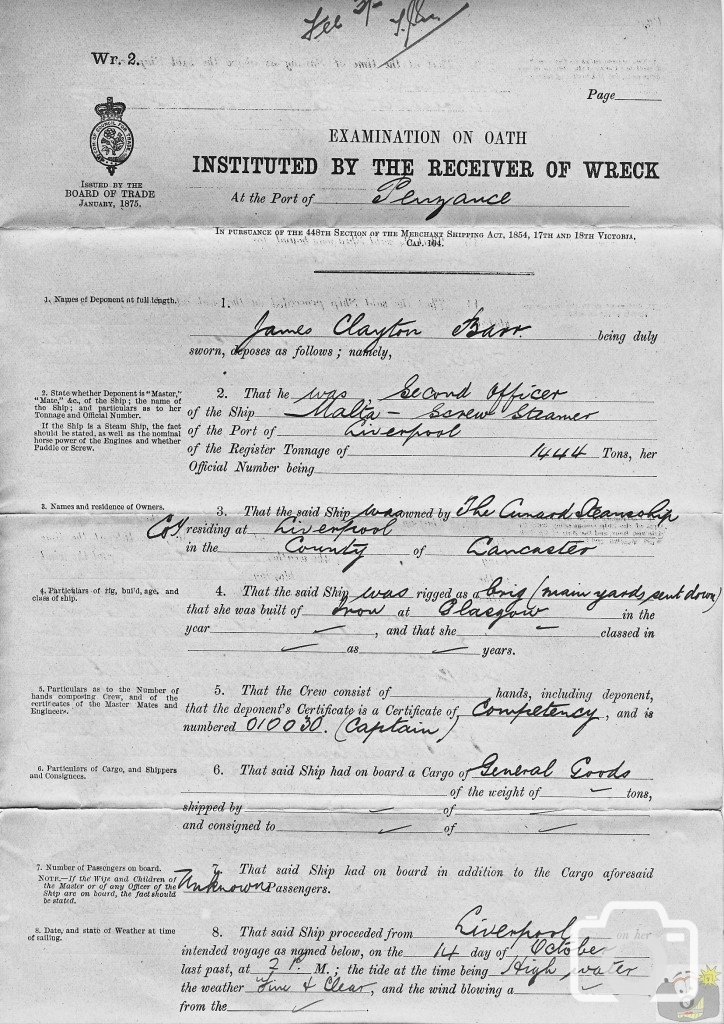 Fee
Wr. 2.
Page
BOARD OF TRADE
ISSUED BY THE
BOARD OF TRADE
JANUARY, 1875.
EXAMINATION ON OATH
INSTITUTED BY THE RECEIVER OF WRECK
At the Port of Penzance
IN PURSUANCE OF THE 448TH SECTION OF THE MERCHANT SHIPPING ACT, 1854, 17TH AND 18TH VICTORIA,
CAP. 104.
1. Names of Deponent at full length.
1.
James Clayton Barr being duly
sworn, deposes as follows; namely,
2. State whether Deponent is "Master,"
"Mate," &c., of the Ship; the name of
the Ship; and particulars as to her
Tonnage and Official Number.
If the Ship is a Steam Ship, the fact
should be stated, as well as the nominal
horse power of the Engines and whether
Paddle or Screw.
2. That he was, Second Officer
of the Ship Malta - Screw Steamer
of the Port of Liverpool
of the Register Tonnage of 1444 Tons, her
Official Number being
3. Names and residence of Owners.
3. That the said Ship was owned by The Cunard Steamship
Coy residing at Liverpool
in the County of Lancaster
4. Particulars of rig, build, age, and
class of ship.
4. That the said Ship was rigged as a brig (main yards sent down)
that she was built of Iron at Glasgow in the
year , and that she classed in
as years.
5. Particulars as to the Number of
hands composing Crew, and of the
certificates of the Master Mates and
Engineers.
5. That the Crew consist of hands, including deponent,
that the deponent's Certificate is a Certificate of Competency, and is
numbered 010030. (Captain)
6. Particulars of Cargo, and Shippers
and Consignees.
6. That said Ship had on board a Cargo of General Goods
of the weight of tons,
shipped by of
and consigned to of
7. Number of Passengers on board.
NOTE.—If the Wife and Children of
the Master or of any Officer of the
Ship are on board, the fact should
be stated.
7. That said Ship had on board in addition to the Cargo aforesaid
Unknown Passengers.
8. Date, and state of Weather at time
of sailing.
8. That said Ship proceeded from Liverpool on her
intended voyage as named below, on the 14 day of October
last past, at 7 P. M.; the tide at the time being High water
the weather Fine & Clear, and the wind blowing a
from the